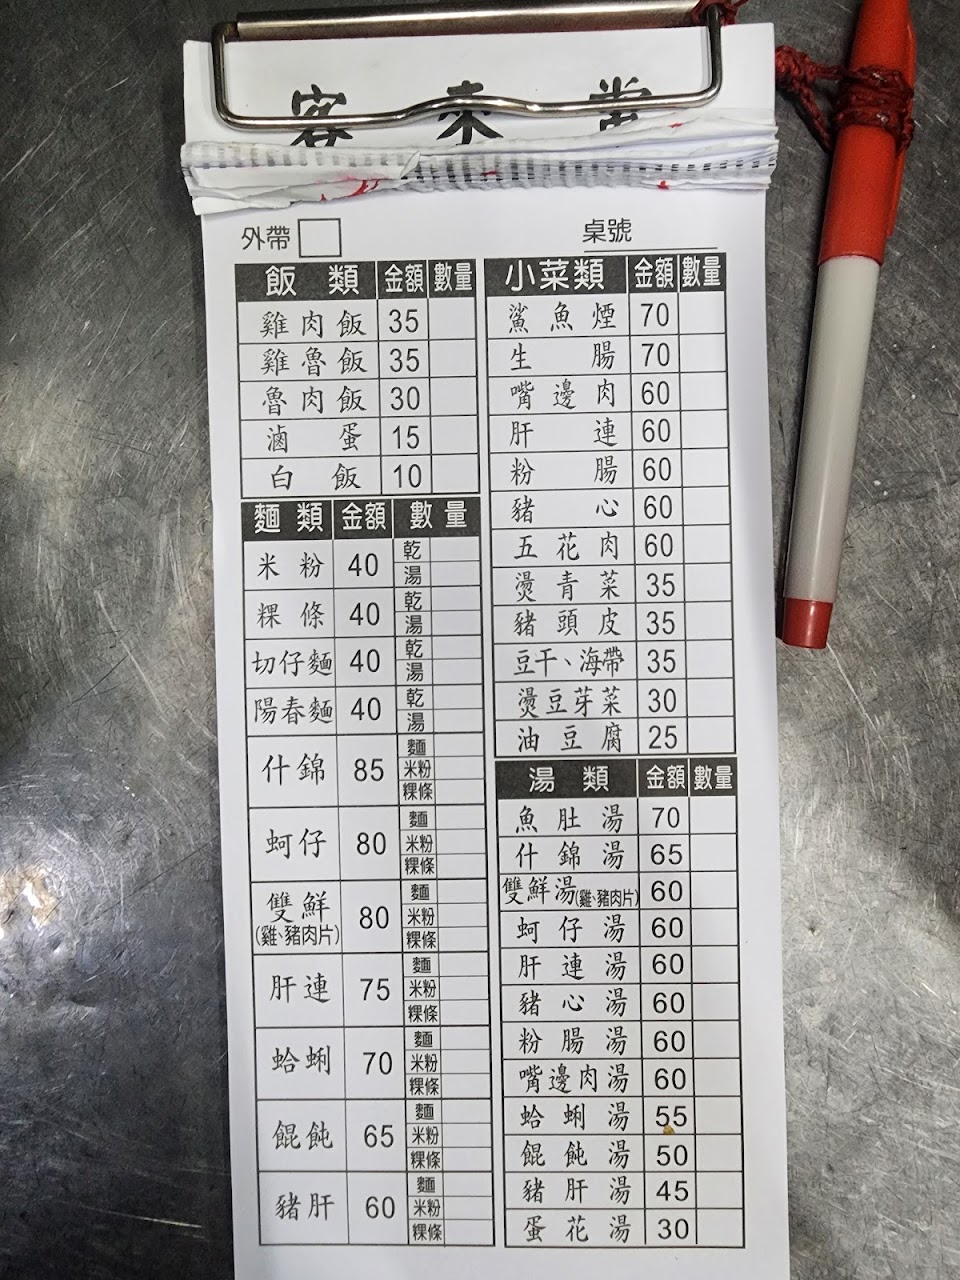 客來嘗
外帶
桌號
飯類 金額 數量
雞肉飯 35
雞魯飯 35
魯肉飯 30
滷蛋 15
白飯 10
麵類 金額 數量
米粉 40 乾
湯
粿條 40 乾
湯
切仔麵 40 乾
湯
陽春麵 40 乾
湯
什錦 85 麵
米粉
粿條
蚵仔 80 麵
米粉
粿條
雙鮮 80 麵
(雞、豬肉片) 米粉
粿條
肝連 75 麵
米粉
粿條
蛤蜊 70 麵
米粉
粿條
餛飩 65 麵
米粉
粿條
豬肝 60 麵
米粉
粿條
小菜類 金額 數量
鯊魚煙 70
生腸 70
嘴邊肉 60
肝連 60
粉腸 60
豬心 60
五花肉 60
燙青菜 35
豬頭皮 35
豆干、海帶 35
燙豆芽菜 30
油豆腐 25
湯類 金額 數量
魚肚湯 70
什錦湯 65
雙鮮湯(雞、豬肉片) 60
蚵仔湯 60
肝連湯 60
豬心湯 60
粉腸湯 60
嘴邊肉湯 60
蛤蜊湯 55
餛飩湯 50
豬肝湯 45
蛋花湯 30